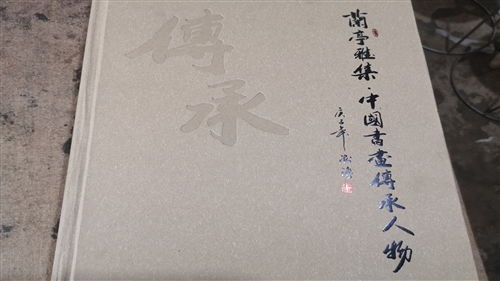 傳承
蘭亭雅集·中國書畫傳承人物